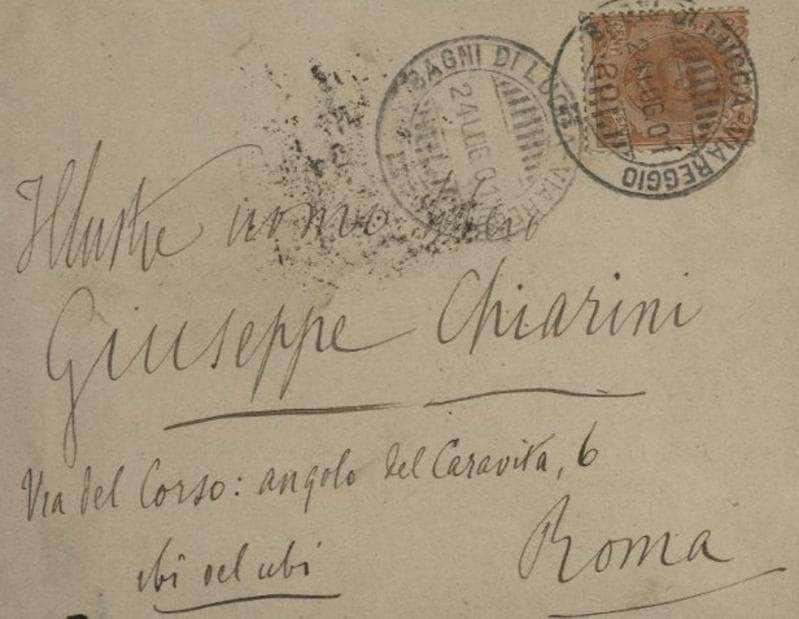 BAGNI DI LUCCA VIAREGGIO
24 LUG 01
BAGNI DI LUCCA - VIAREGGIO
24 LUG 01
Illustre uomo
Giuseppe Chiarini
Via del Corso: angolo del Caravita, 6
ibi vel ubi
Roma